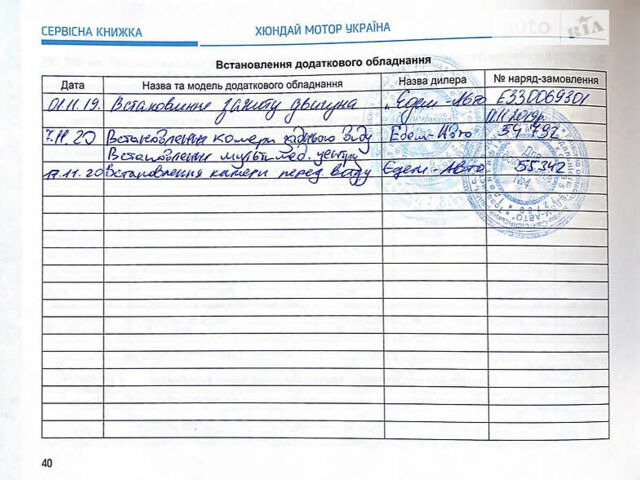 СЕРВІСНА КНИЖКА
ХЮНДАЙ МОТОР УКРАЇНА
auto RIA
Встановлення додаткового обладнання
Дата Назва та модель додаткового обладнання Назва дилера № наряд-замовлення
01.11.19. Встановлення захисту двигуна „Едем-Авто E330069301
7.11.20 Встановлення камери заднього виду Едем-Авто 54 792
Встановлення мультимед. центру
17.11.20 Встановлення камери перед. виду Едем-Авто 55342
40